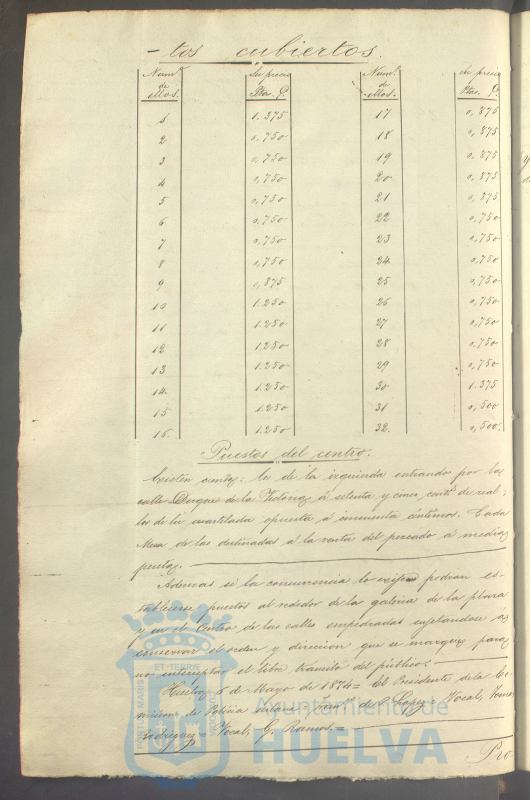 - tos cubiertos.
Num.º de ellos. Su precio Ptas. C. Num.º de ellos. Su precio Ptas. C.
1 1.375 17 0,875
2 0,750 18 0,875
3 0,750 19 0,875
4 0,750 20 0,875
5 0,750 21 0,875
6 0,750 22 0,750
7 0,750 23 0,750
8 0,750 24 0,750
9 0,875 25 0,750
10 1.250 26 0,750
11 1.250 27 0,750
12 1.250 28 0,750
13 1.250 29 0,750
14 1.250 30 1.375
15 1.250 31 0,500
16 1.250 32 0,500.
Puestos del centro.
Existen : los de la izquierda entrando por la
calle Duque de la Victoria á setenta y cinco cent.s de real;
los de la cuartelada opuesta á cincuenta céntimos. Cada
Mesa de las destinadas á la venta del pescado á media
peseta.
Ademas si la concurrencia lo podran es-
tablecerse puestos al rededor de la galeria de la plaza
y en el centro de las calles empedradas sujetandose á
conservar el orden y direccion que se marque para
no interceptar el libre tránsito del público.
Huelva 6 de Mayo de 1874 = El Presidente de la Co-
mision de Policia urbana, de Lopez = Vocal, Tomas
Rodriguez = Vocal, G. Ramos. =
Pro-
Ayuntamiento de
HUELVA